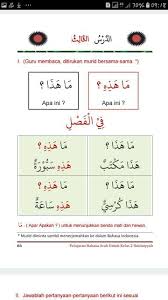 الدَّرْسُ الثَّالِثُ
I. (Guru membaca, ditirukan murid bersama-sama)
مَا هَذَا ؟ مَا هَذِهِ ؟
Apa ini ? Apa ini ?
فِي الْفَصْلِ
مَا هَذِهِ ؟ مَا هَذَا ؟
هَذِهِ سَبُّوْرَةٌ هَذَا مَكْتَبٌ
مَا هَذِهِ ؟ مَا هَذَا ؟
هَذِهِ سَاعَةٌ هَذَا كُرْسِيٌّ
مَا ( Apa/ Apakah ? ) untuk menunjukan benda mati dan hewan.
* Murid diminta sambil menerjemahkan ke dalam Bahasa Indonesia
Pelajaran Bahasa Arab Untuk Kelas 2 Ibtidaiyyah
II. Jawablah pertanyaan-pertanyaan berikut ini sesuai